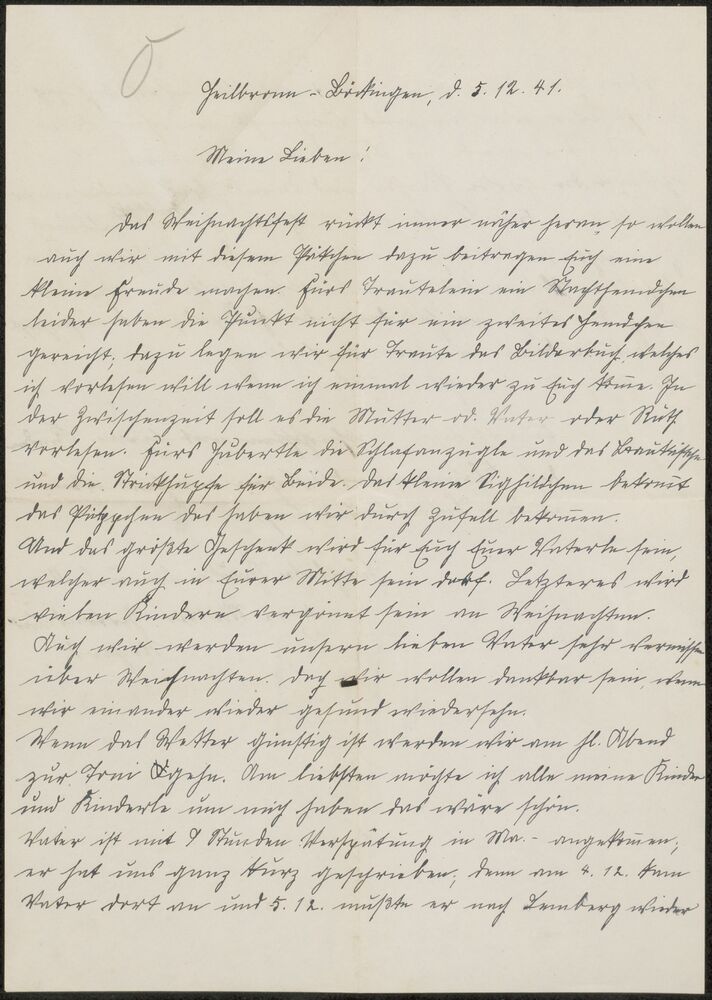 Heilbronn-Böckingen, d. 5.12.41.
Meine Lieben!
Das Weihnachtsfest rückt immer näher heran, so wollen
auch wir mit diesem Päckchen dazu beitragen Euch eine
kleine Freude machen. Fürs Trautelein ein Nachthemdchen
leider haben die Punkt nicht für ein zweites Hemdchen
gereicht; dazu legen wir für Traute das Bilderbuch welches
ich vorlesen will wenn ich einmal wieder zu Euch kome. In
der Zwischenzeit soll es die Mutter od. Vater oder Ruth
vorlesen. Fürs Hubertle die Schlafanzügle und das
und die für Beide. Das kleine Sighildchen bekomt
das Püppchen das haben wir durch Zufall bekomen.
Und das größte Geschenk wird für Euch Euer Vaterle sein,
welcher auch in Eurer Mitte sein darf. Letzteres wird
vielen Kindern vergönnt sein an Weihnachten.
Auch wir werden unsern lieben Vater sehr vermissen
über Weihnachten. Doch wir wollen dankbar sein, wenn
wir einander wieder gesund wiedersehn.
Wenn das Wetter günstig ist werden wir am hl. Abend
zur Toni gehn. Am liebsten möchte ich alle meine Kinder
und Kinderle um mich haben das wäre schön.
Vater ist mit 9 Stunden Verspätung in Wa.- angekomen;
er hat uns ganz kurz geschrieben; denn am 4.12. kam
Vater dort an und 5.12. mußte er nach Lemberg wieder